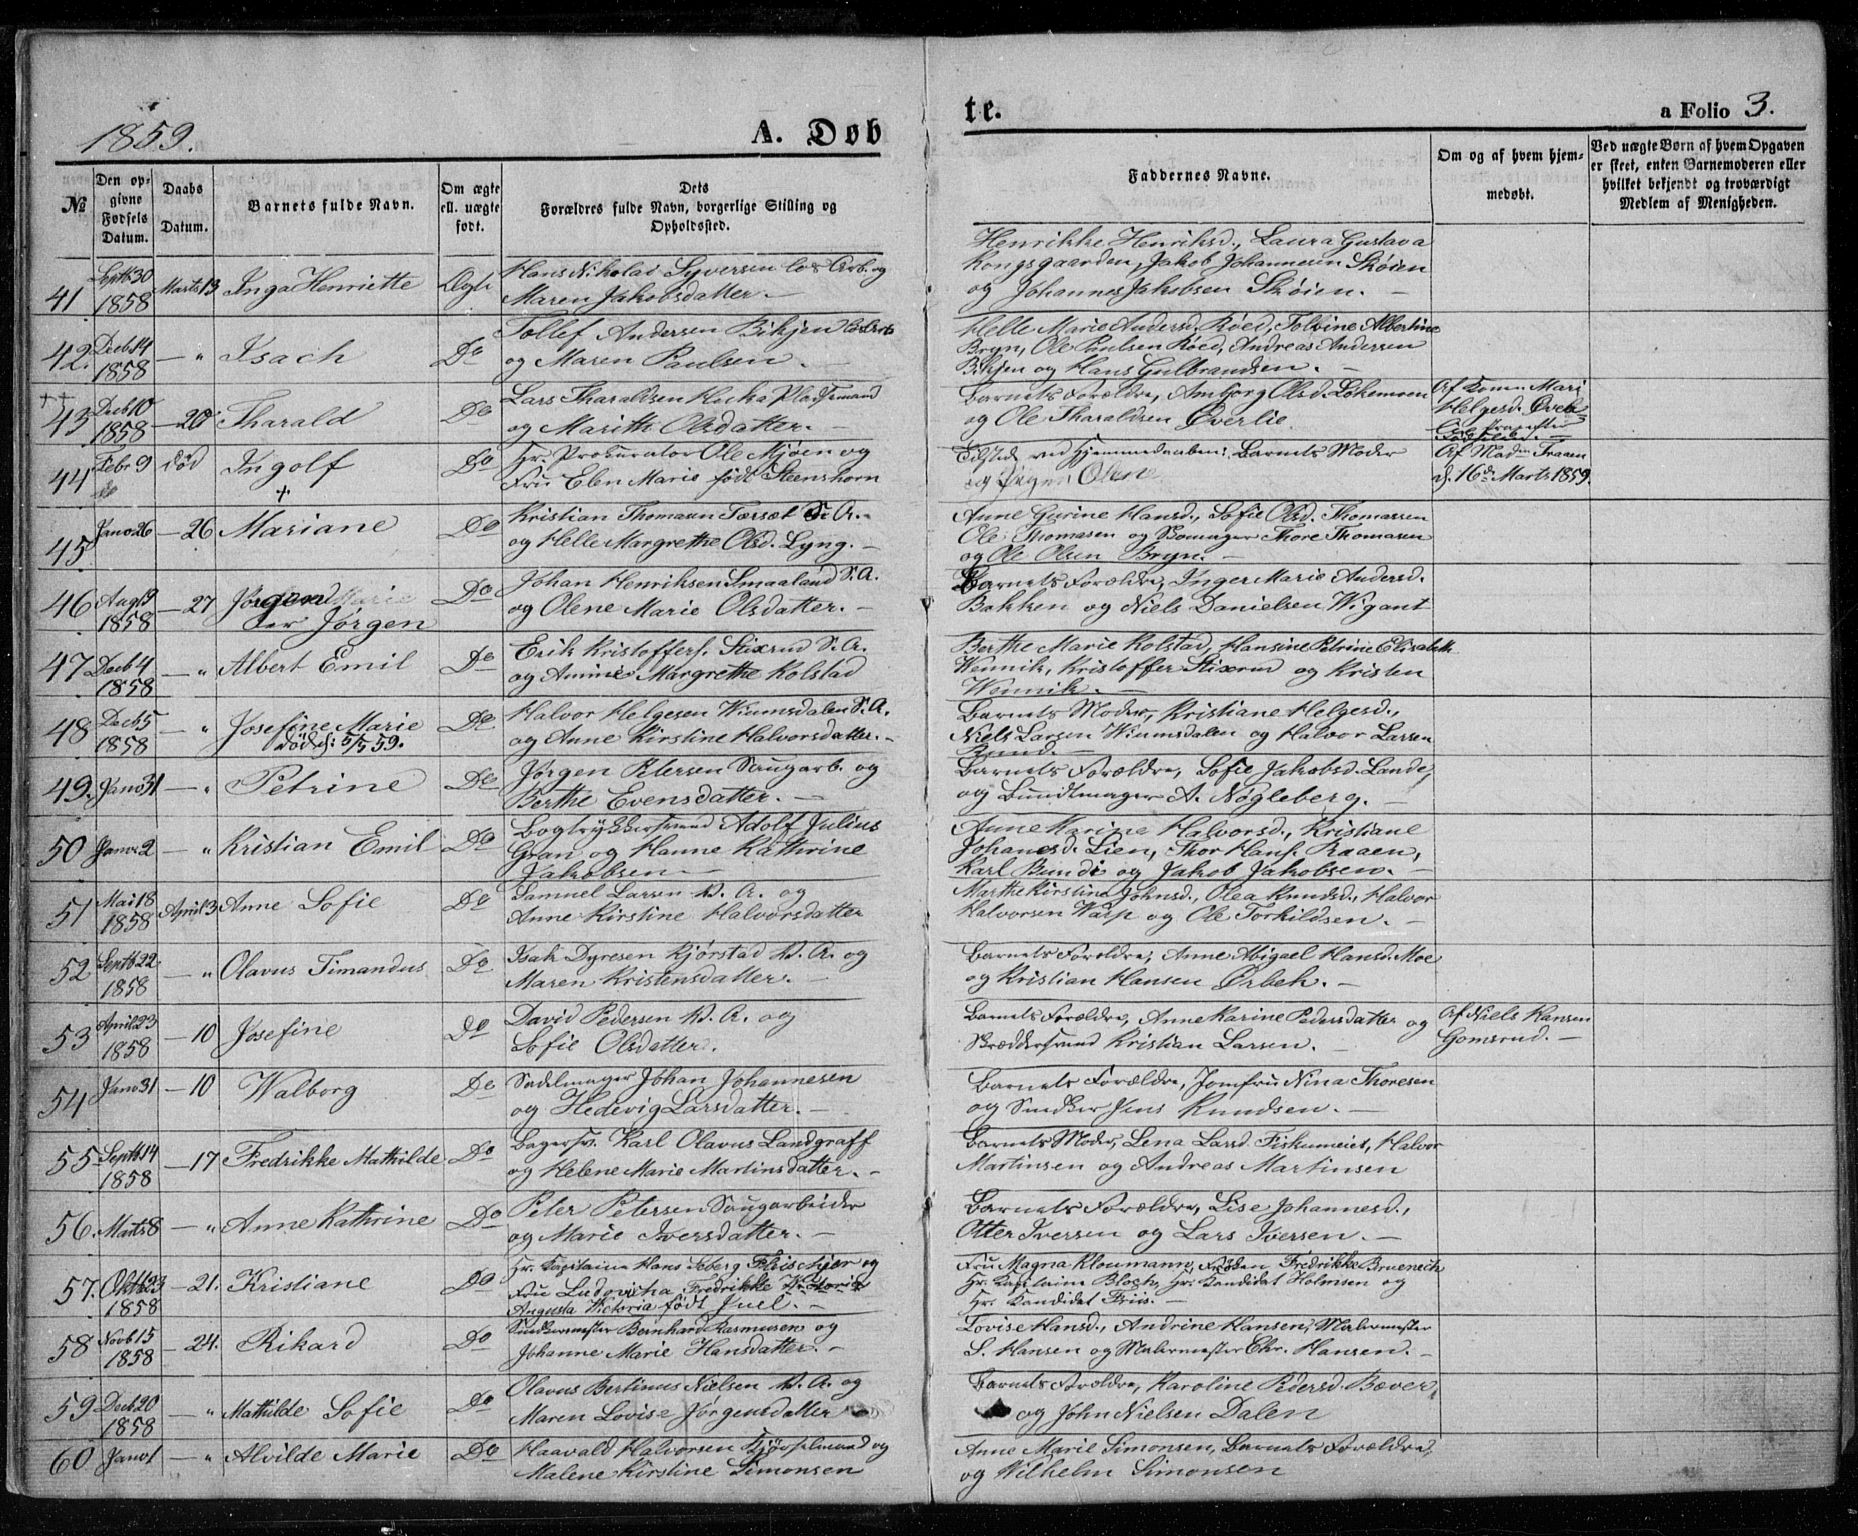 1859.
A. Døb
te.
a Folio 3.
№
Den op-
givne
Fødsels
Datum.
Daabs
Datum.
Barnets fulde Navn.
Om ægte
ell. uægte
født.
Dets
Forældres fulde Navn, borgerlige Stilling og
Opholdssted.
Faddernes Navne.
Om og af hvem hjem-
medøbt.
Ved uægte Børn af hvem Opgaven
er skeet, enten Barnemoderen eller
hvilket bekjendt og troværdigt
Medlem af Menigheden.
41 Septb 30 1858 Marts 13 Inga Henriette Ægte
Hans Nikolai Syversen Arb. og
Maren Jakobsdatter. —
Henrikke Henriksd., Laura Gustava
Kongsgaarden, Jakob Johannesen Skøien
og Johannes Jakobsen Skøien. —
42. Decb 14 1858 — " Isach Do
Tollef Andersen Bikjen
og Maren Paulsen.
Helle Marie Andersd. Røed, Tolvine Albertine
Bryn, Ole Paulsen Røed, Andreas Andersen
Bikjen og Hans Gulbrandsen. —
++
43 Decb 10 1858 — 20 Tharald Do
Lars Tharaldsen Plads?mand
og Marith Olsdatter. —
Barnets Forældre, Amborg Olsd. Løkemoen
og Ole Tharaldsen Øverlie.
Af Konen Mari
Helgesd. Øver-
Lie
Fødselen. —
44 Febr 9 død Ingolf Do
+
Hr. Prokurator Ole Mjøen og
Fru Elen Marie født Steenshorn
Tilsted ved Hjemmedaaben: Barnets Moder
og Olene
Af Madm Fraaen
d. 16de Marts 1859.
45 Janv 26 — 26 Mariane Do
Kristian Thomasen Færset S. A.
og Helle Margrethe Olsd. Lyng. —
Anne Gurine Hansd., Sofie Olsd. Thomassen
Ole Thomasen og Thore Thomasen
og Ole Olsen Bryn. —
46 Aug 9 1858 — 27 Jørgen
er Jørgen Do
Johan Henriksen Smaaland S. A.
og Olene Marie Olsdatter. —
Barnets Forældre, Inger Marie Andersd.
Bakken og Niels Danielsen Wigant
47 Decb 4 1858 — " Albert Emil Do
Erik Kristoffers. Stixrud S. A.
og Annine Margrethe Kolstad
Berthe Marie Kolstad, Hansine Petrine Elisabeth
Wennik, Kristoffer Stixrud og Kristen
Wennik. —
48 Decb 5 1858 — " Josefine Marie Do
død d: 5/5 59.
Halvor Helgesen Wiumsdalen S. A.
og Anne Kirstine Halvorsdatter. —
Barnets Moder, Kristiane Helgesd.,
Niels Larsen Wiumsdalen og Halvor Larsen
Rund. —
49. Janv 31 — " Petrine Do
Jørgen Petersen Saugarb. og
Berthe Evensdatter. —
Barnets Forældre, Sofie Jakobsd. Lande,
og Bundtmager A. Nøgleberg. —
50 Janv 2 — " Kristian Emil Do
Bogtrykkersvend Adolf Julius
Gran og Hanne Kathrine
Jakobsen —
Anne Karine Halvorsd., Kristiane
Johansd. Lien, Thor Hans. Raaen,
Karl Bundi og Jakob Jakobsen. —
51 Mai 18 1858 April 3 Anne Sofie Do
Samuel Larsen K. A. og
Anne Kirstine Halvorsdatter
Marthe Kirstine Johnsd., Olea Knudsd., Halvor
Halvorsen Warp og Ole Torkildsen. —
52 Septb 22 1858 — " Olavus Timandus Do
Isak Dyresen Kjørstad K. A. og
Maren Kristensdatter. —
Barnets Forældre, Anne Abigael Hansd. Moe
og Kristian Hansen Ørbek. —
53 April 23 1858 — 10 Josefine Do
David Pedersen K. A. og
Sofie Olsdatter.
Barnets Forældre, Anne Karine Pedersdatter og
Skræddersvend Kristian Larsen. —
Af Niels Hansen
Gomsrud. —
54 Janv 31 — 10 Walborg Do
Sadelmager Johan Johannesen
og Hedevig Larsdatter. —
Barnets Forældre, Jomfru Nina Thoresen
og Snedker Jens Knudsen. —
55 Septb 14 1858 — 17 Fredrikke Mathilde Do
Bagersv. Karl Olavus Landgraff
og Helene Marie Martinsdatter. —
Barnets Moder, Lena Larsd. Fiskumeiet, Halvor
Martinsen og Andreas Martinsen
56. Marts 8 — " Anne Kathrine Do
Peter Petersen Saugarbeider
og Marie Iversdatter. —
Barnets Forældre, Lise Johannesd.,
Otter Iversen og Lars Iversen. —
57. Oktb 23 1858 — 21. Kristiane Do
Hr. Kapitaine Hans Seberg Fleischer og
Fru Ludovicka Fredrikke Victoria
Augusta Victoria født Juel. —
Fru Magna Kloumann, Frøken Fredrikke Bruenech
Hr. Kapitaine Bloch, Hr. Kandidat Holmsen og
Hr. Kandidat Friis. —
58 Novb 15 1858 — 24. Rikard Do
Snedkermester Bernhard Rasmusen og
Johanne Marie Hansdatter. —
Lovise Hansd., Andrine Hansen, Malermester
S. Hansen og Malermester Chr. Hansen. —
59 Decb 20 1858 — " Mathilde Sofie Do
Olavus Bertinus Nielsen K. A. og
Maren Lovise Jørgensdatter
Barnets Forældre, Karoline Pedersd. Bæver,
og John Nielsen Dalen
60 Janv 1 — " Alvilde Marie Do
Haavald Halvorsen Kjørselmand og
Malene Kirstine Simonsen
Anne Marie Simonsen, Barnets Forældre,
og Wilhelm Simonsen